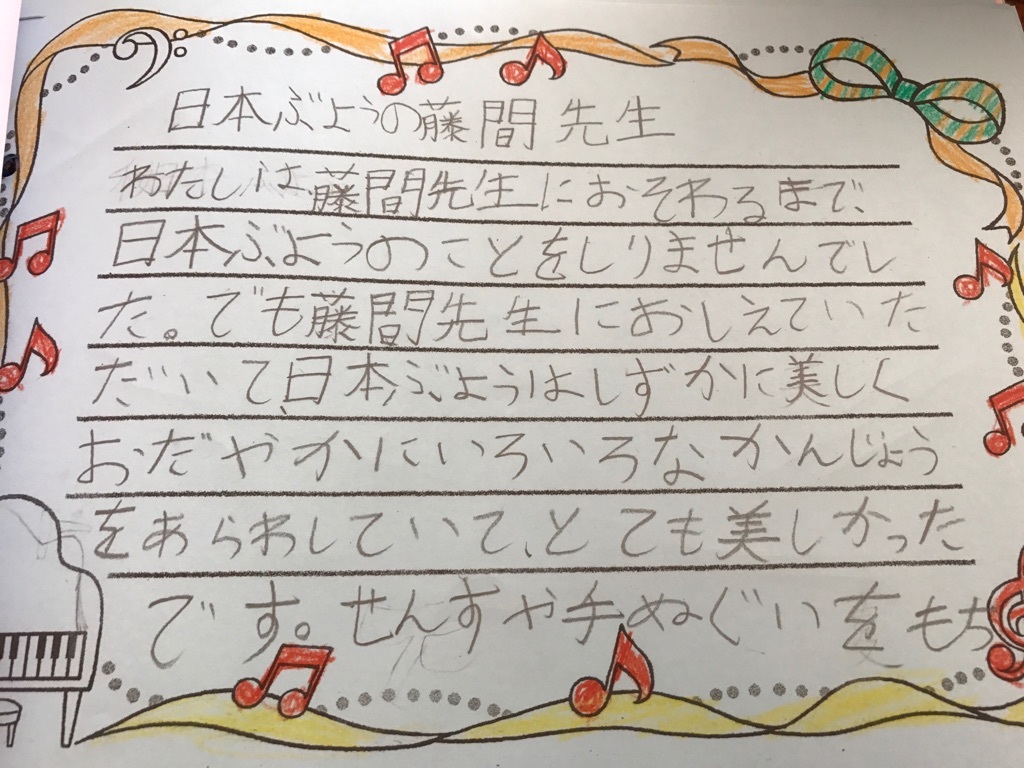 日本ぶようの藤間先生
わたしは藤間先生におそわるまで、
日本ぶようのことをしりませんでし
た。でも藤間先生におしえていた
だいて、日本ぶようはしずかに美しく
おだやかにいろいろなかんじょう
をあらわしていて、とても美しかった
です。せんすや手ぬぐいをもち